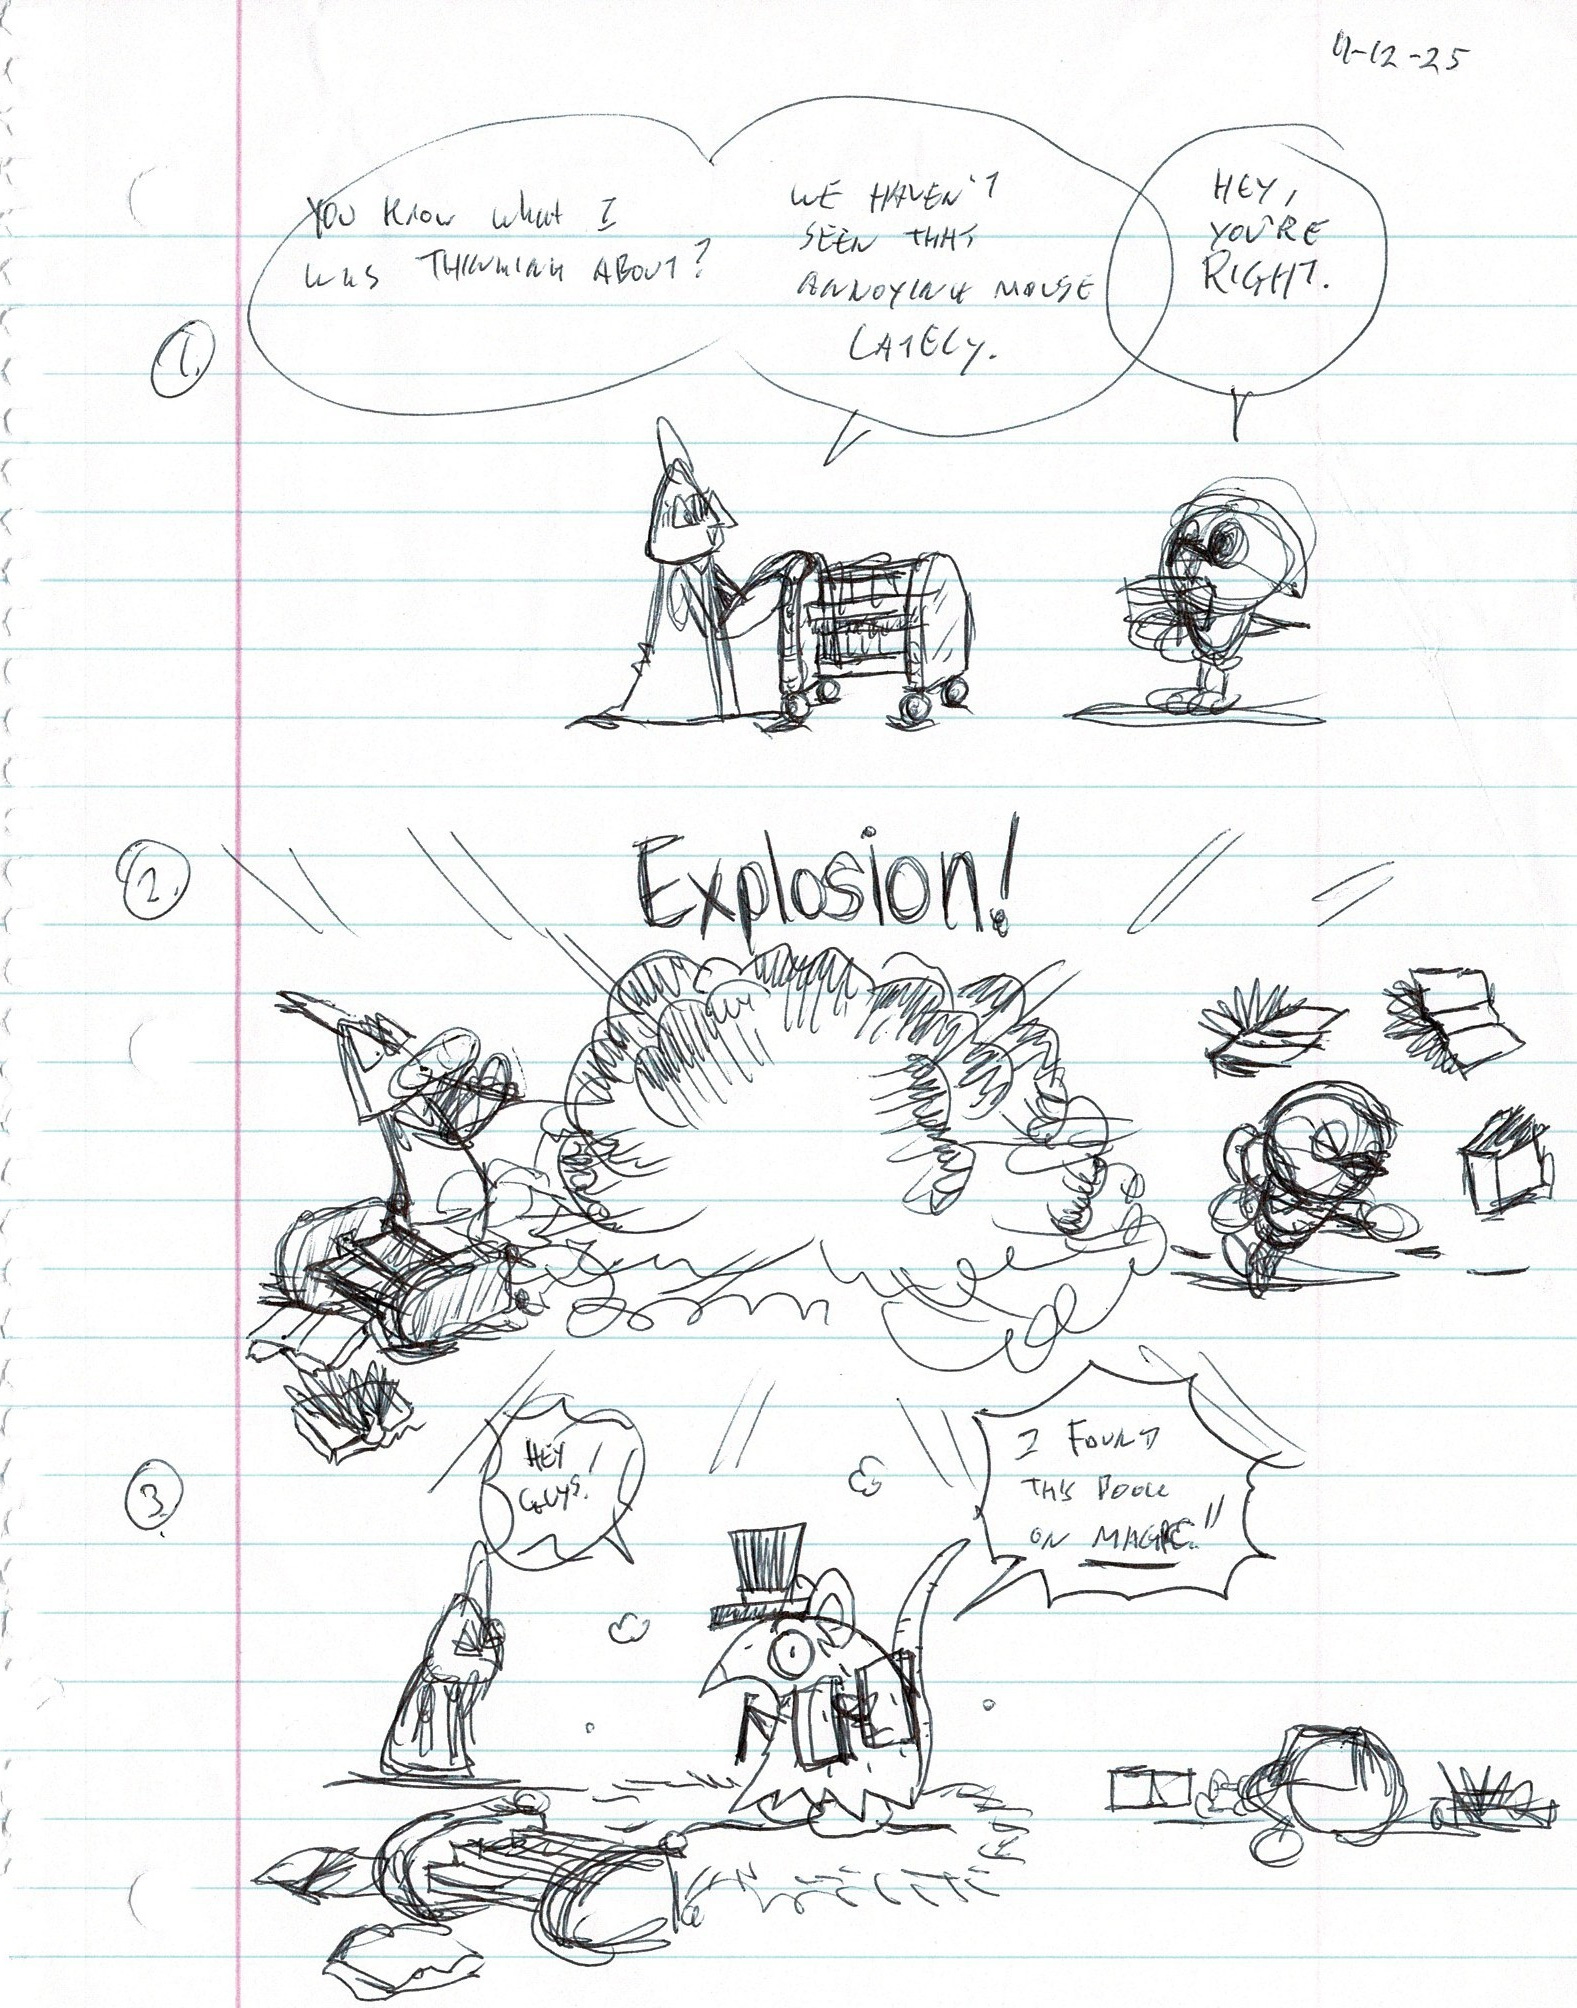 4-12-25
1.
YOU KNOW WHAT I
WAS THINKING ABOUT?
WE HAVEN'T
SEEN THAT
ANNOYING MOUSE
LATELY.
HEY,
YOU'RE
RIGHT.
2.
Explosion!
3.
HEY
GUYS!
I FOUND
THIS BOOK
ON MAGIC!!